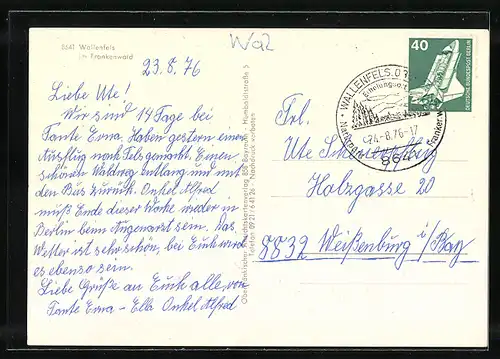 8641 Wallenfels
im Frankenwald
Waz
23.8.76
Liebe Ute!
Wir sind 14 Tage bei
Tante Erna. Haben gestern einen
Ausflug nach Felsgemarkt. Einen
schönen Waldweg entlang und mit
den Bus zurück. Onkel Alfred
muß Ende dieser Woche wieder in
Berlin beim Augenarzt sein. Das
Wetter ist sehr schön, bei Euch wird
es ebenso sein.
Liebe Grüße an Euch alle, von
Tante Erna - Ella Onkel Alfred
Oberfränkischer Ansichtskartenverlag 858 Bayreuth Humboldtstraße 5
Telefon 09 21 / 6 41 26 Nachdruck verboten
40
DEUTSCHE BUNDESPOST BERLIN
WALLENFELS, O
Frankenwald
24.-8.76-17
8641
Frl.
Ute
Holzgasse 20
8832 Weißenburg i/Bay